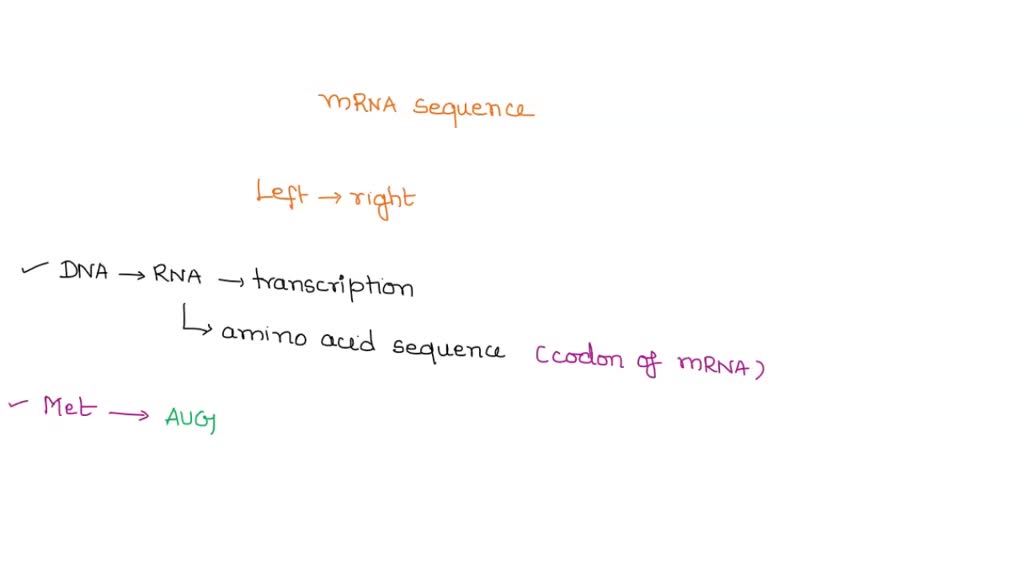 mRNA sequence
Left → right
✓ DNA → RNA → transcription
↳ amino acid sequence (codon of mRNA)
✓ Met → AUG